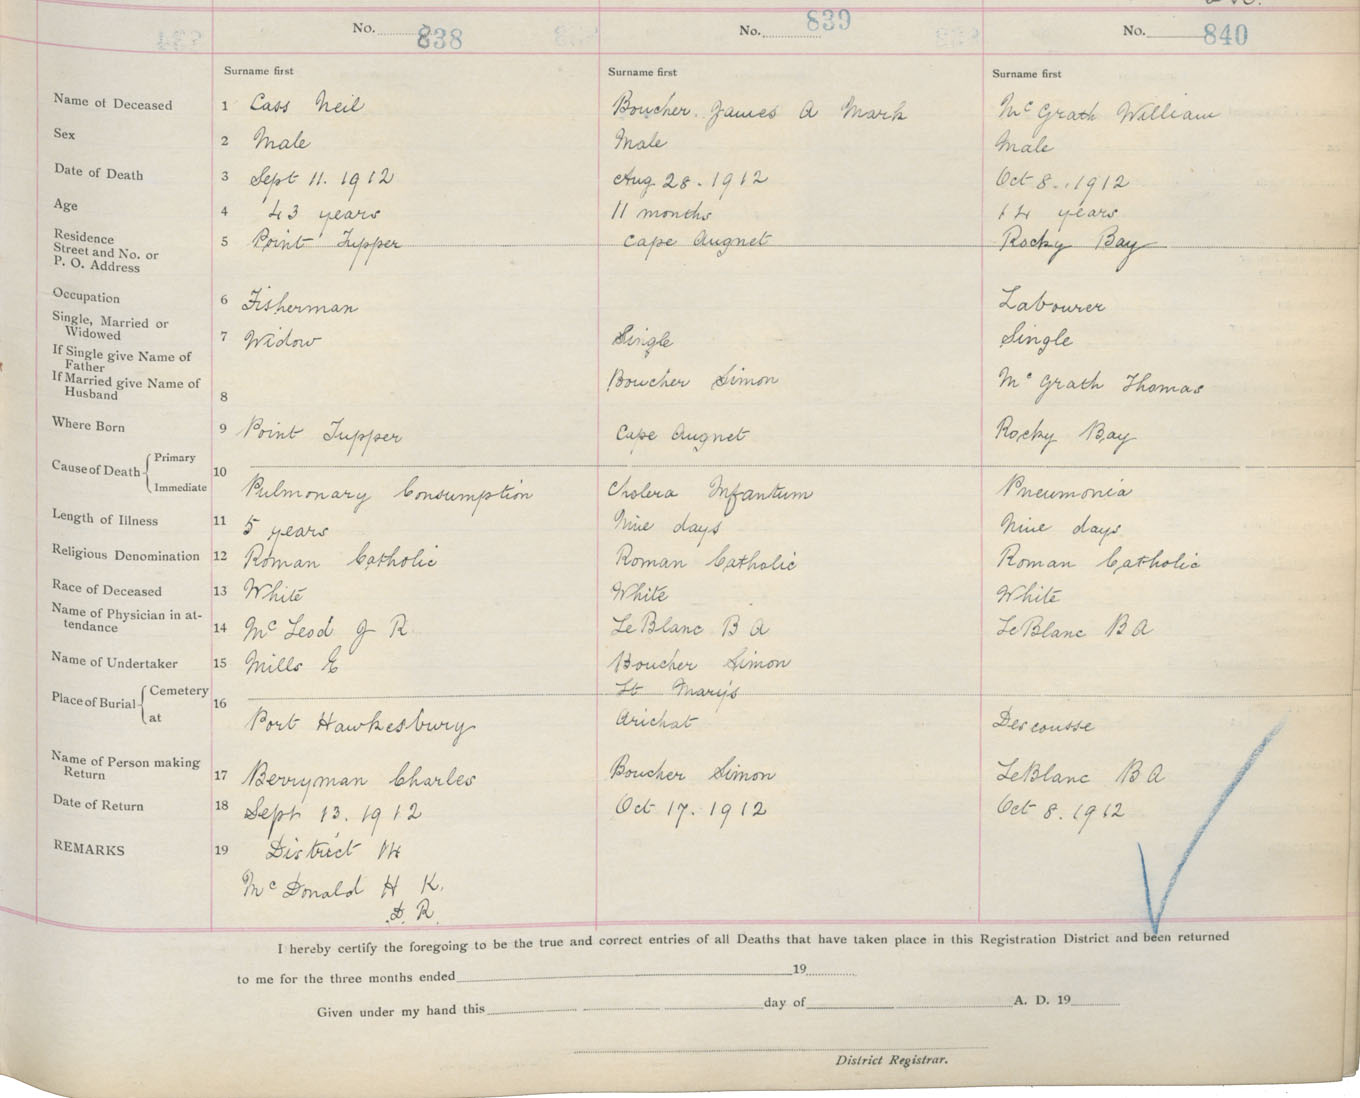 No. 838 No. 839 No. 840
Surname first Surname first Surname first
Name of Deceased 1 Cass Neil Boucher James A Mark Mc Grath William
Sex 2 Male Male Male
Date of Death 3 Sept 11. 1912 Aug 28. 1912 Oct 8. 1912
Age 4 43 years 11 months 14 years
Residence
Street and No. or
P. O. Address 5 Point Tupper Cape Augnet Rocky Bay
Occupation 6 Fisherman Labourer
Single, Married or
Widowed 7 Widow Single Single
If Single give Name of
Father
If Married give Name of
Husband 8 Boucher Simon Mc Grath Thomas
Where Born 9 Point Tupper Cape Augnet Rocky Bay
Cause of Death Primary
Immediate 10 Pulmonary Consumption Cholera Infantum Pneumonia
Length of Illness 11 5 years Nine days Nine days
Religious Denomination 12 Roman Catholic Roman Catholic Roman Catholic
Race of Deceased 13 White White White
Name of Physician in at-
tendance 14 Mc Leod J R LeBlanc B A LeBlanc B A
Name of Undertaker 15 Mills E Boucher Simon
Place of Burial Cemetery 16 St Mary's
at Port Hawkesbury Arichat Descousse
Name of Person making
Return 17 Berryman Charles Boucher Simon LeBlanc B A
Date of Return 18 Sept 13. 1912 Oct 17. 1912 Oct 8. 1912
REMARKS 19 District 14
Mc Donald H K.
D. R.
I hereby certify the foregoing to be the true and correct entries of all Deaths that have taken place in this Registration District and been returned
to me for the three months ended 19
Given under my hand this day of A. D. 19
District Registrar.